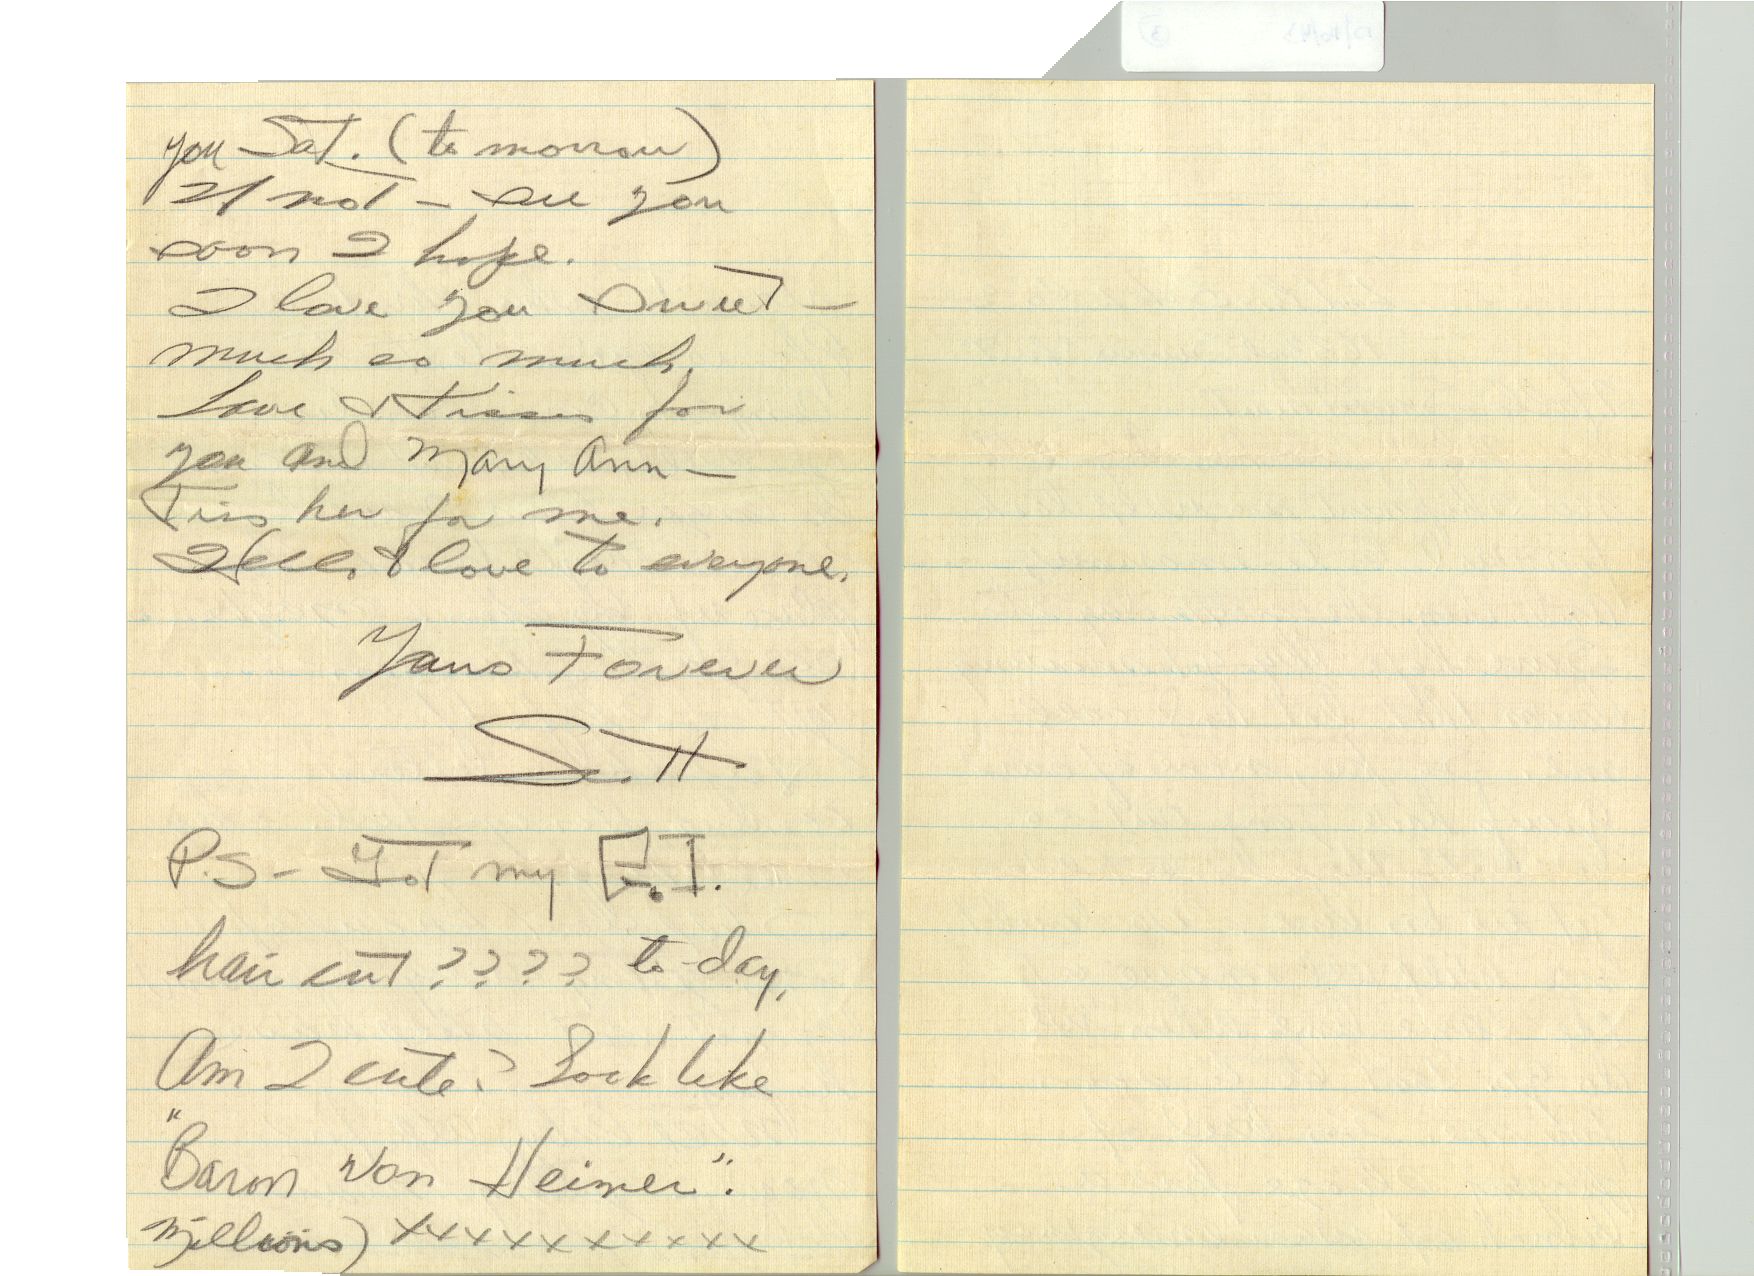 you Sat. (to morrow)
If not - see you
soon I hope.
I love you sweet -
much so much.
Love & Kisses for
you and Mary Ann -
Kiss her for me.
Hello & love to everyone.
Yours Forever
Scott
P.S - Got my G.I.
hair cut ???? to-day,
Am I cute? Look like
"Baron Von Heimer".
millions) xxxxxxxxxxx